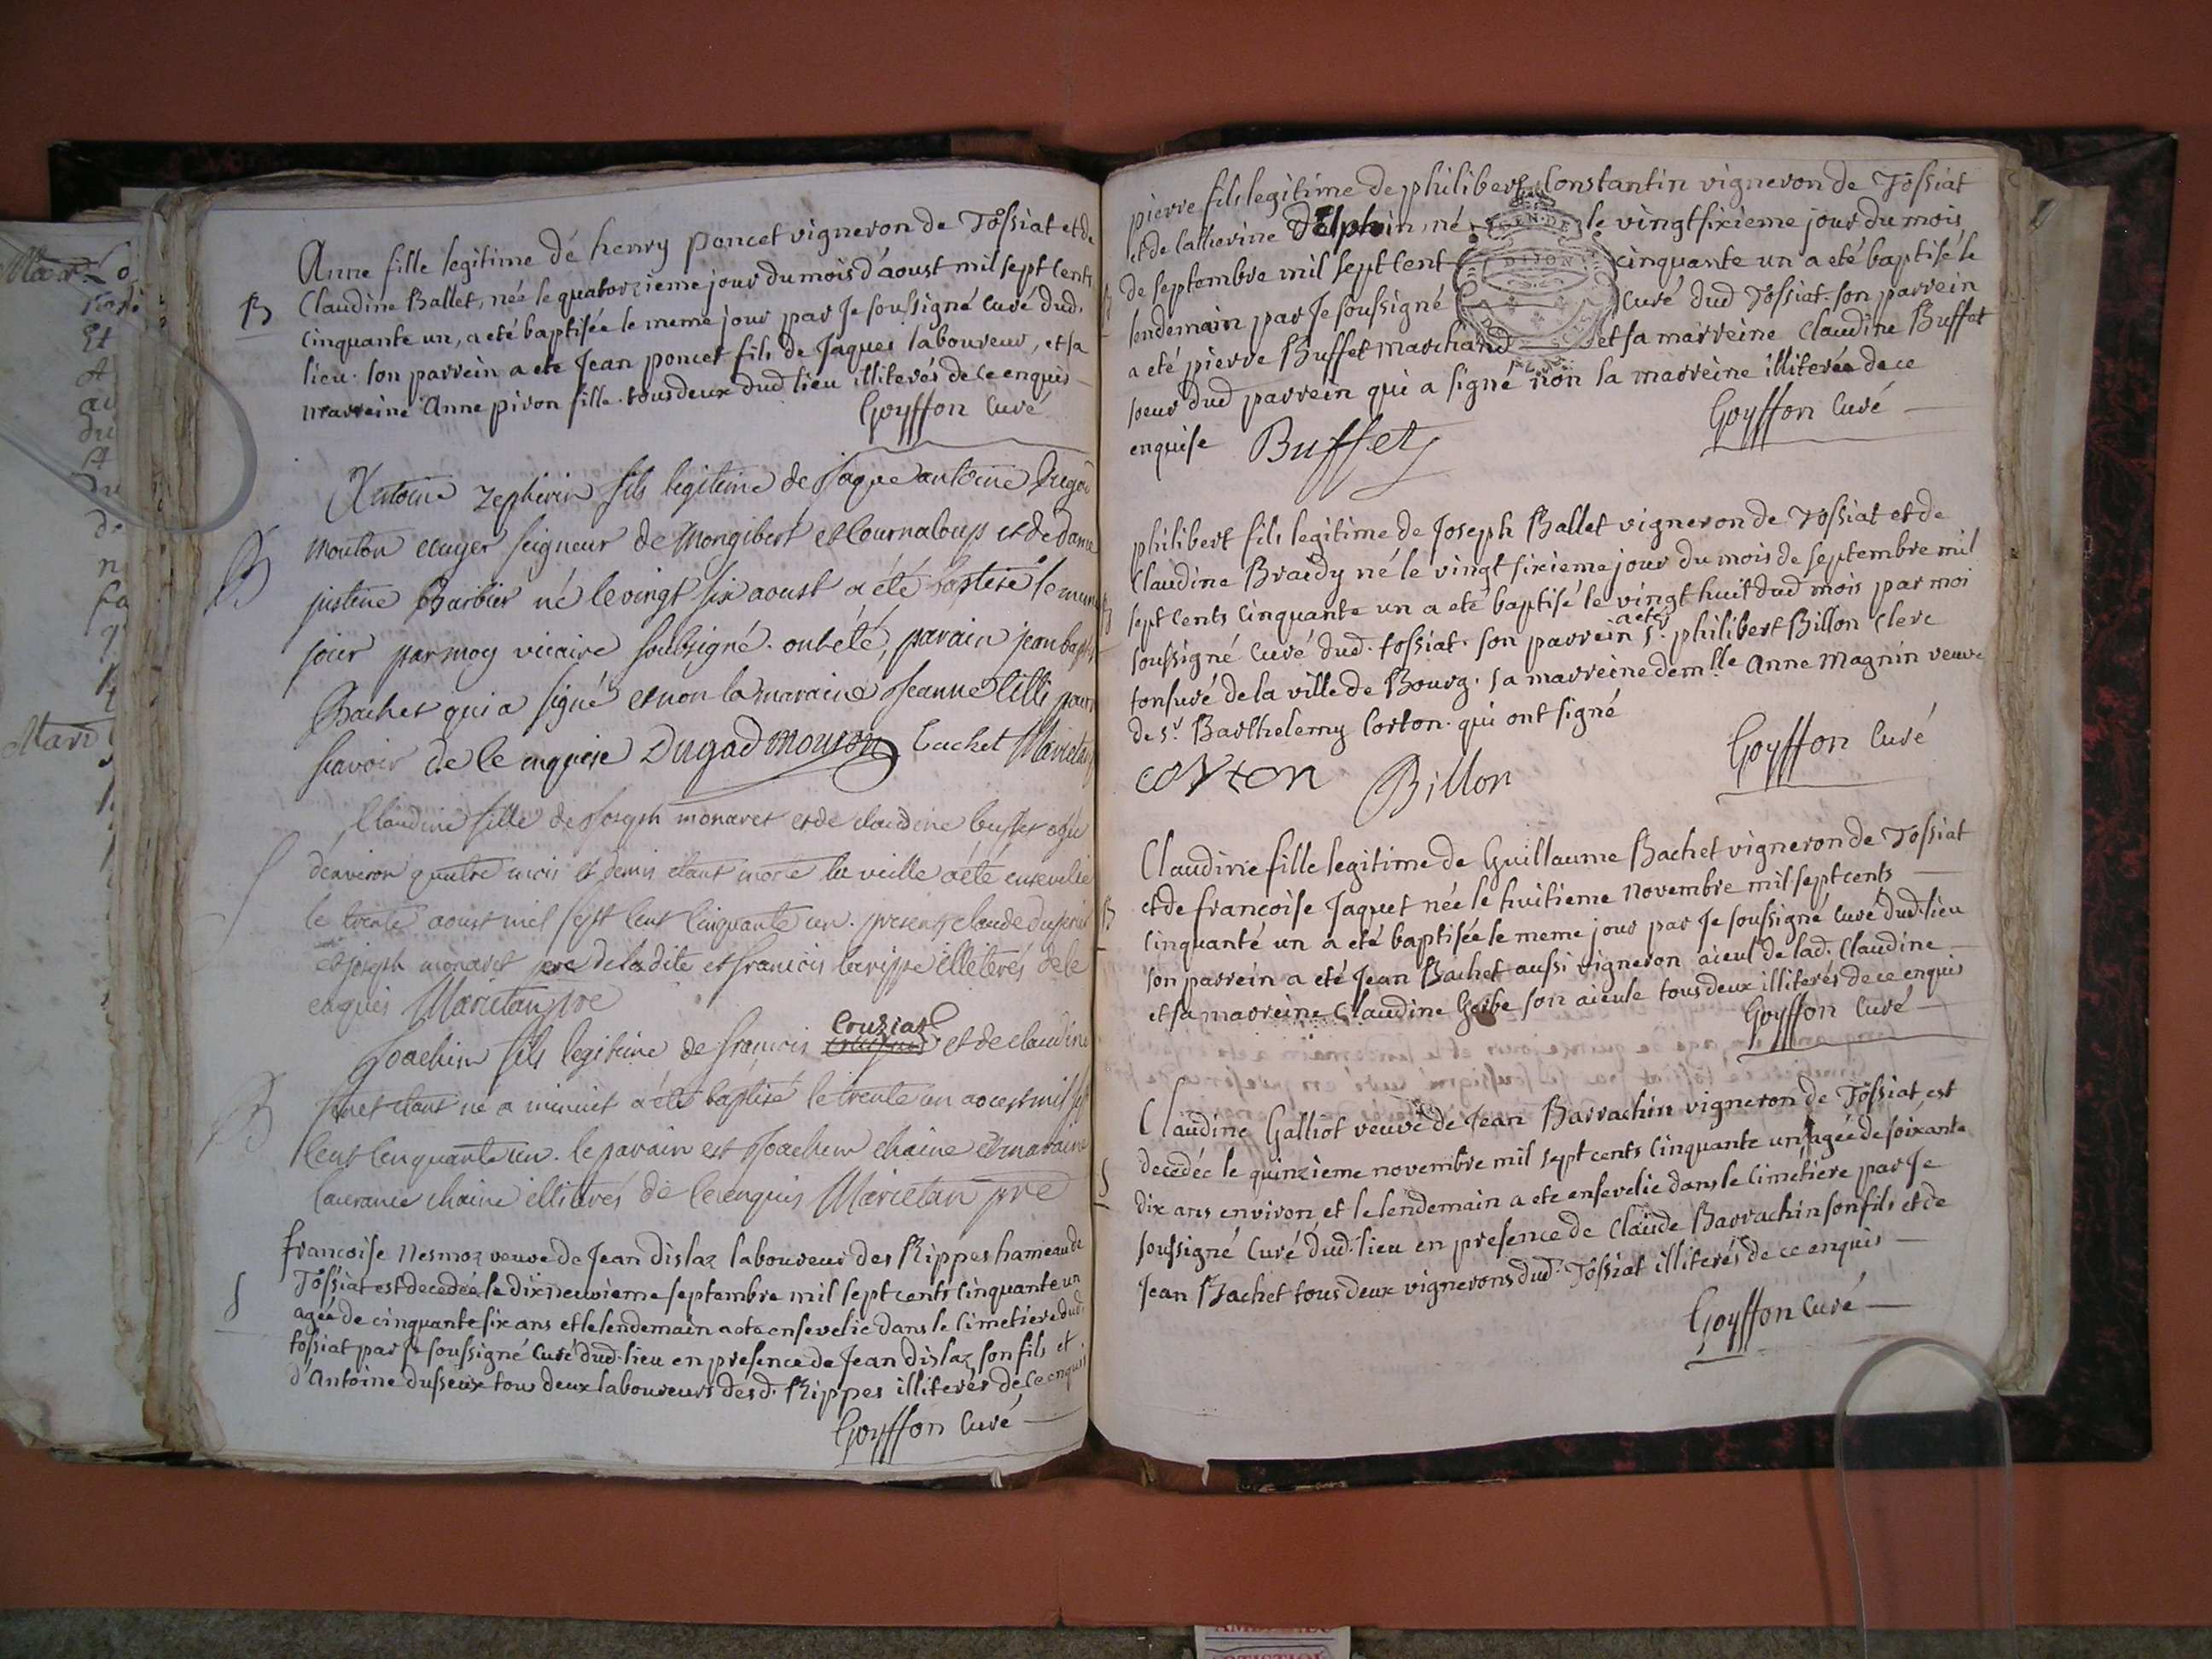 Anne fille legitime de henry poncet vigneron de Tossiat et de
B
Claudine Ballet, née le quatorzieme jour du mois d'aoust mil sept cents
cinquante un, a eté baptisée le meme jour par Je soussigné curé dud.
lieu. son parrein a eté Jean poncet fils de Jaques laboureur, et sa
marreine Anne piron fille. tous deux dud lieu illiterés de ce enquis
Goyffon Curé
Antoine Zephirin fils legitime de Jaque antoine Dugad
B
mouton ecuyer seigneur de Mongibert et Cournaloup et de dame
justine Barbier né le vingt six aoust a été baptisé le meme
jour par moy vicaire soubsigné. ont été, parain jean bapt
Bachet qui a signé et non la maraine Jeanne tilli pour
scavoir de ce enquise Dugad Mouton Bachet Maricta
Claudine fille de Joseph monaret et de claudine buffet agée
S
d'environ quatre mois et demis etant morte la veille a été ensevelie
le trente aoust mil sept cent cinquante un. presents claude
et joseph monaret pere de ladite et francois larippe illeterés de ce
enquis Marietan pre
Cruziat
Joachim fils legitime de francois et de claudine
B
etant né a minuit a été baptisé le trente un aoust mil sep
cent cinquante un. le parain est Joachim chaine et maraine
laurance chaine illiterés de ce enquis Marietan pre
francoise Nesmoz veuve de Jean dislaz laboureur des Rippes hameau de
S
Tossiat est decedée le dix neuvieme septembre mil sept cents cinquante un
agée de cinquante six ans et le lendemain a eté ensevelie dans le cimetiere dud.
tossiat par Je soussigné Curé dud. lieu en presence de Jean dislaz son fils et
d'Antoine dusseux tous deux laboureurs desd. Rippes illiterés de ce enquis
Goyffon Curé
pierre fils legitime de philibert Constantin vigneron de Tossiat
et de Catherine Delphin, né le vingt sixieme jour du mois
GEN·DE
DIJON
B
de septembre mil sept cent cinquante un a eté baptisé le
lendemain par Je soussigné Curé dud Tossiat. son parrein
a eté pierre Buffet marchand et sa marreine Claudine Buffet
soeur dud parrein qui a signé non la marreine illiterée de ce
enquise Buffet Goyffon Curé
philibert fils legitime de Joseph Ballet vigneron de Tossiat et de
Claudine Braidy né le vingt sixieme jour du mois de septembre mil
B
sept cents cinquante un a eté baptisé le vingt huit dud mois par moi
a eté
soussigné Curé dud. tossiat. son parrein Sr. philibert Billon Clerc
tonsuré de la ville de Bourg. sa marreine demlle Anne Magnin veuve
de Sr. Barthelemy Corton. qui ont signé
corton Billon Goyffon Curé
Claudine fille legitime de Guillaume Bachet vigneron de Tossiat
et de francoise Jaquet née le huitieme Novembre mil sept cents
B
cinquante un a eté baptisée le meme jour par Je soussigné curé dud. lieu
son parrein a eté Jean Bachet aussi vigneron aieul de lad. Claudine
et sa marreine Claudine Gerbe son aieule tous deux illiterés de ce enquis
Goyffon Curé
Claudine Galliot veuve de Jean Barrachin vigneron de Tossiat, est
decedée le quinzieme novembre mil sept cents cinquante un agée de soixante
S
dix ans environ et le lendemain a eté ensevelie dans le cimetiere par Je
soussigné Curé dud. lieu en presence de Claude Barrachin son fils et de
Jean Bachet tous deux vignerons dud. Tossiat illiterés de ce enquis
Goyffon Curé